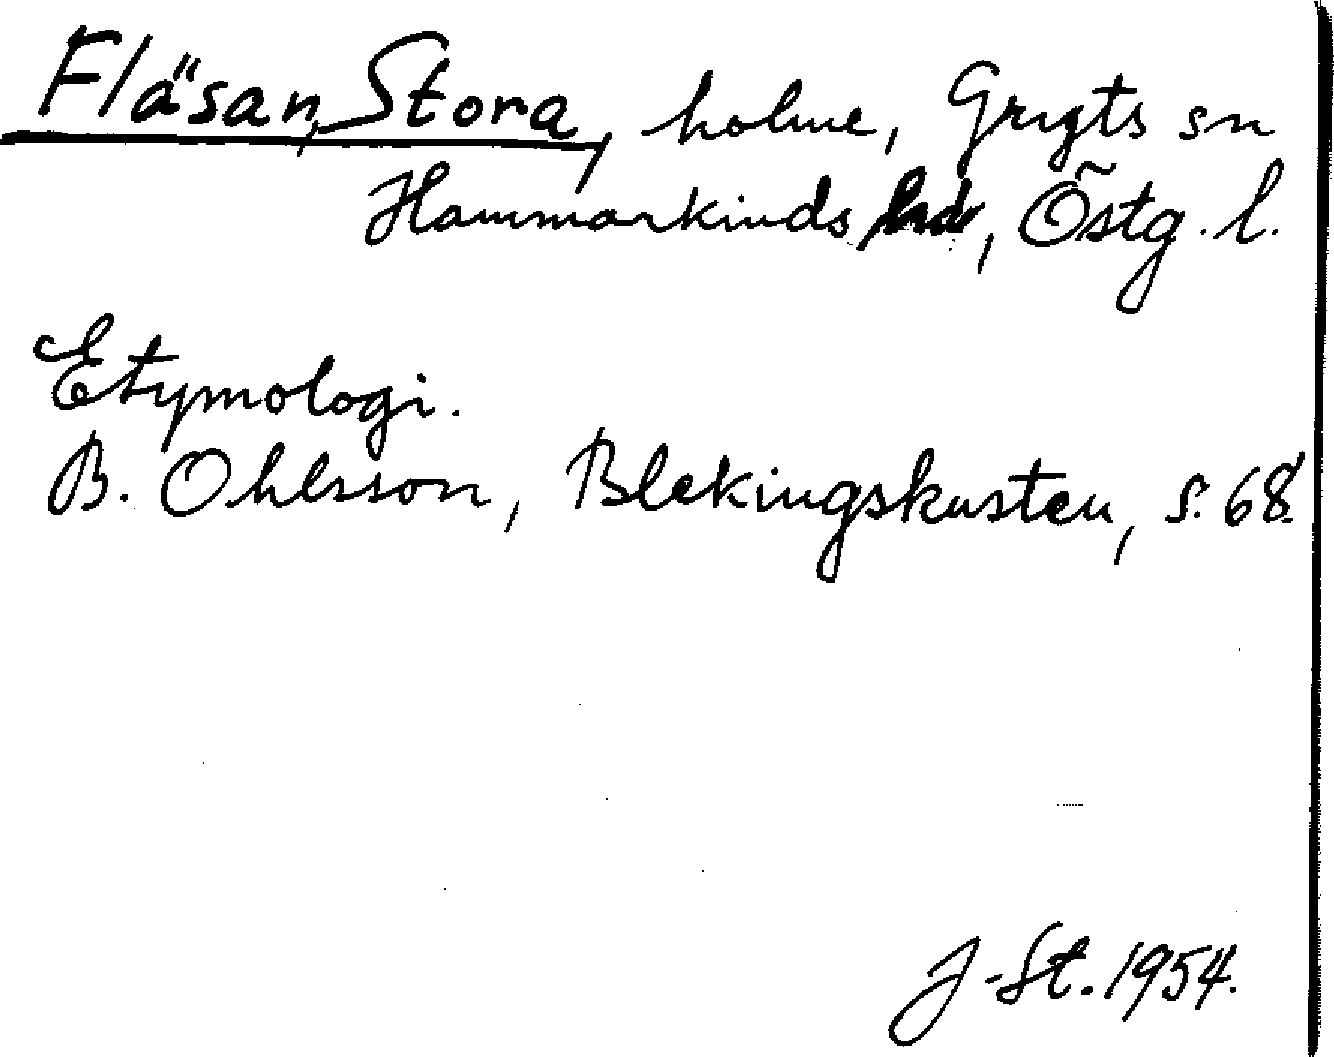 Fläsan, Stora, holme, Gryts sn
Hammarkinds hd, Östg. l.
Etymologi.
B. Ohlsson, Blekingskusten, s. 68.
J-St. 1954.